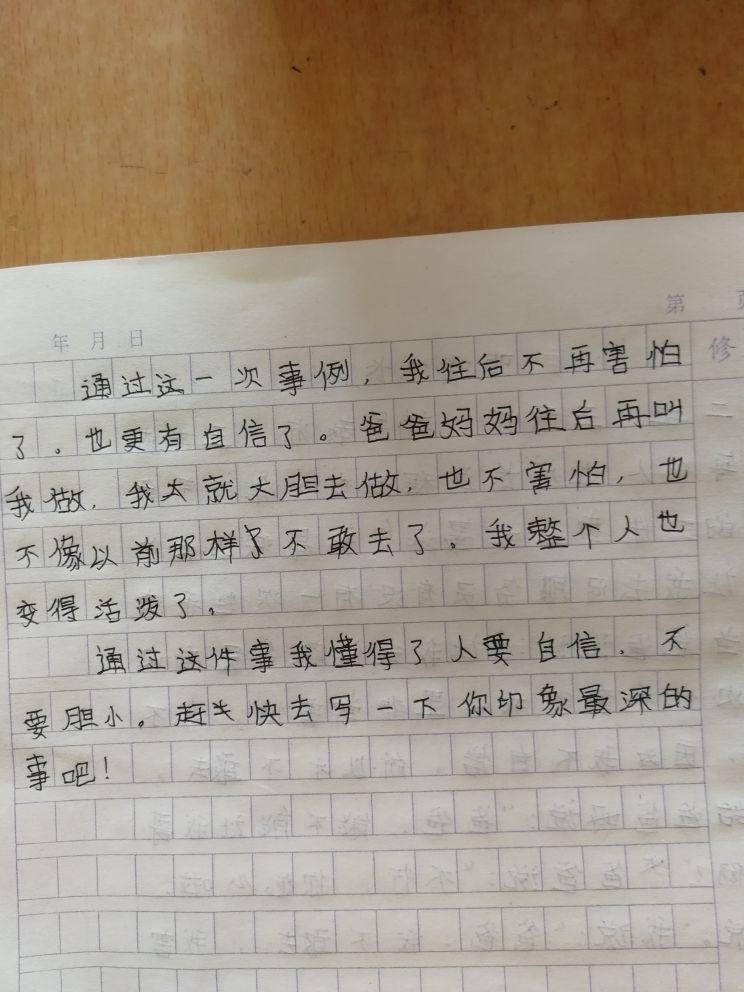 第 页
年 月 日
修
通过这一次事例，我往后不再害怕
了。也更有自信了。爸爸妈妈往后再叫
我做，我大就大胆去做，也不害怕，也
不像以前那样了不敢去了。我整个人也
变得活泼了。
通过这件事我懂得了人要自信，不
要胆小。赶头快去写一下你印象最深的
事吧！